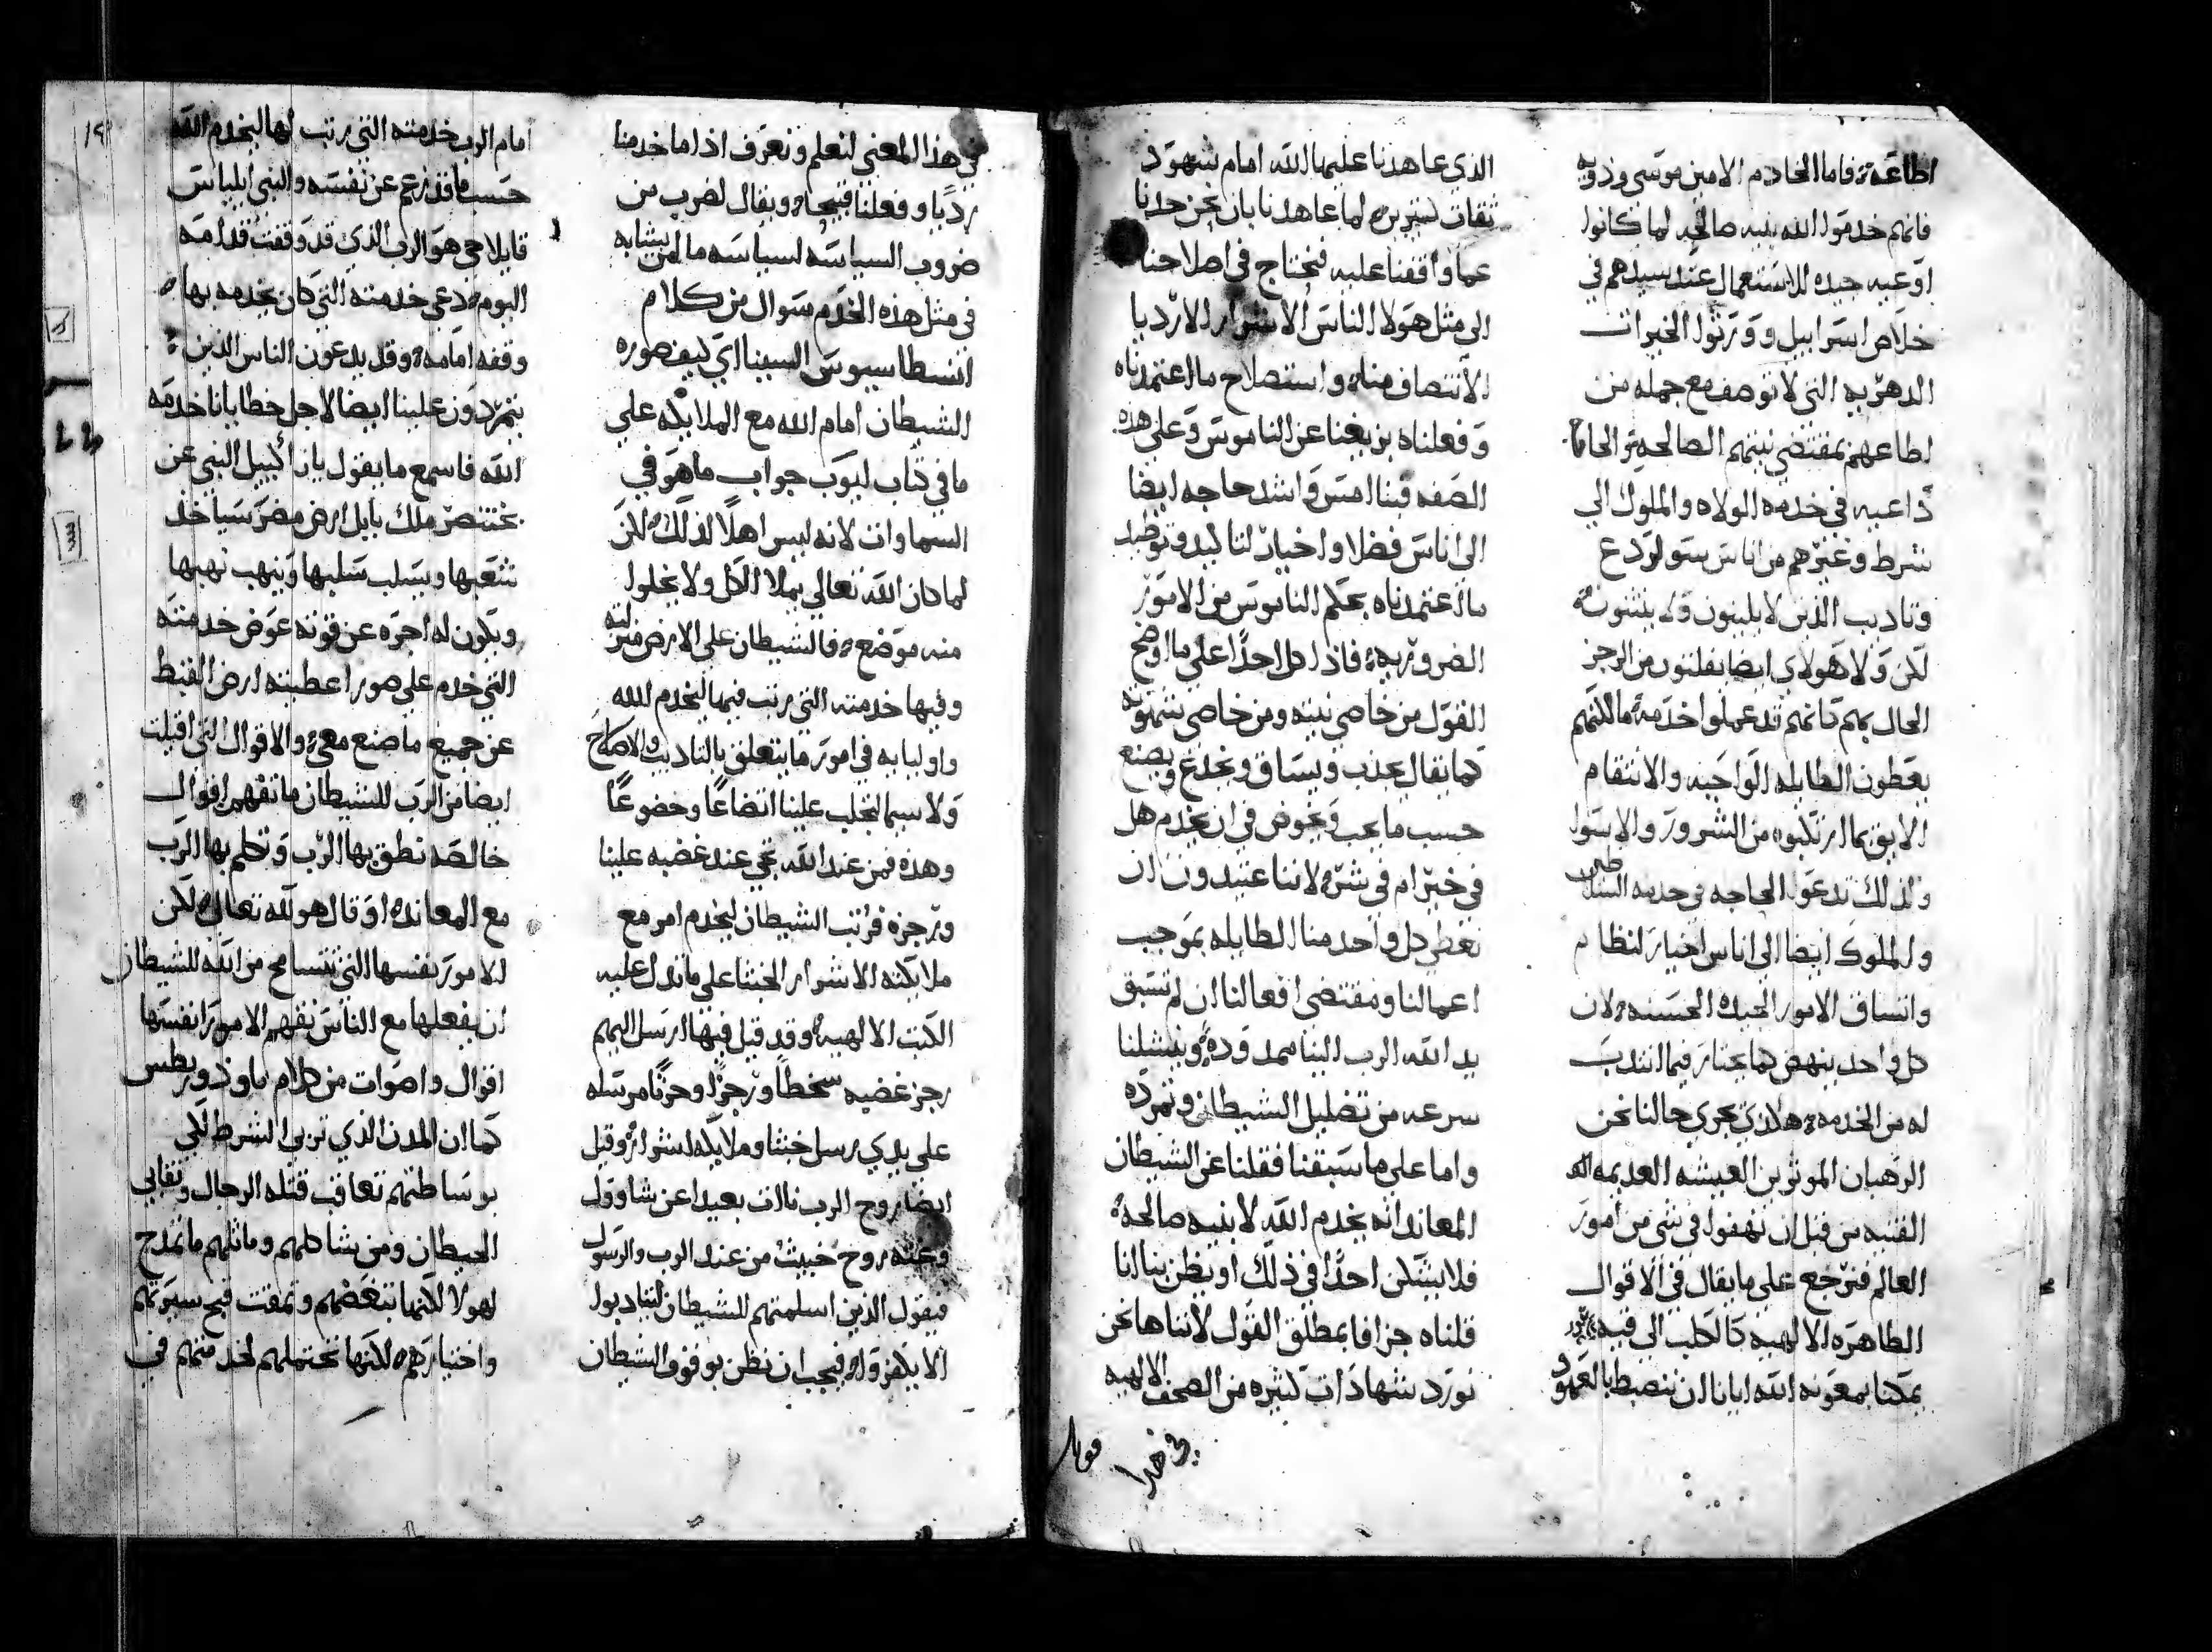 اطاعة فاما الخادم الامين موسى وذويه
فانهم خدموا لله بنيه صالحه لما كانوا
اوعيه جيده للاستعمال عند سيدهم في
خلاص اسراييل وورثوا الخيرات
الدهريه التي لا توصف مع جمله من
اطاعهم بمقتضي نيتهم الصالحه والحاجه
داعيه في خدمه الولاه والملوك الي
شرط وغيرهم من اناس لردع
وتاديب الذين لا يلينون ولا ينثنون
لكن ولا هولاي ايضا يفلتون من الرجز
الحال بهم كانهم قد عملوا خدمة ما لكنهم
يعطون الطايله الواجبه والانتقام
الايق بما ارتكبوه من الشرور والاسوا
ولذلك تدعوا الحاجه في خدمه السلاطين
والملوك ايضا الي اناس اخيار لنظام
واتساق الامور الجيده الحسنه لان
كل واحد ينهض كما يختار فيما انتدب
له من الخدمه هكذي يجري حالنا نحن
الرهبان الموثرين العيشه العديمه
القنيه من قبل ان نهفوا في شي من امور
العالم فنرجع علي ما يقال في الاقوال
الطاهره الالهيه كالكلب الي قيه
يمكنا بمعونه الله ايانا ان ننضبط بالعهود
الذي عاهدنا عليها الله امام شهود
ثقات لما عاهدنا بان نحن حدنا
عما واقفنا عليه فنحتاج في اصلاحنا
الي مثل هولا الناس الاشرار الارديا
الانتصاف منا واستصلاح ما اعتمدناه
وفعلناه بزيغنا عن الناموس وعلي هذه
الصفه فبنا امس واشد حاجه ايضا
الي اناس فضلا واخيار لنا ليد وتوطيد
ما اعتمدناه بحكم الناموس من الامور
الضروريه فاذا كل احدا علي ما اوضح
القول من خاصي نيته ومن خاصي شهوته
كما يقال يجذب ويساق ويخدع ويصنع
حسب ما يحب ويخوض في ان يخدم هل
في خير ام في شر لاننا عتيدون ان
نعطي كل واحد منا الطايله بموجب
اعمالنا ومقتضي افعالنا ان لم تسبق
يد الله الرب الينا ممدوده وينشلنا
سرعه من تضليل الشيطان وتمرده
واما علي ما سبقنا فقلنا عن الشيطان
المعاند انه يخدم الله لا بنيه صالحه
فلا يشكن احدا في ذلك او يظن بنا اننا
قلناه جزافا بمطلق القول لاننا ها نحن
نورد شهادات كثيره من الصحف الالهيه
في هذا المعني لنعلم ونعرف اذا ما خدمنا
رديا وفعلنا قبيحا ويقال لضرب من
ضروب السياسه لسياسه ما لمن يشابه
في مثل هذه الخدم سوال من كلام
انسطاسيوس السينااي كيف صوره
الشيطان امام الله مع الملايكه علي
ما في كتاب ايوب جواب ما هو في
السماوات لانه ليس اهلا لذلك لكن
لما كان الله تعالي يملا الكل ولا يخلوا
منه موضع فالشيطان علي الارض منزلته
وفيها خدمته التي رتب فيها ليخدم الله
واوليايه في امور ما يتعلق بالتاديب والاصلاح
ولا سيما ليجلب علينا اتضاعا وخضوعا
وهذه فمن عند الله تجي عند غضبه علينا
ورجزه فرتب الشيطان ليخدم امر مع
ملايكته الاشرار الخبثا علي ما تدل عليه
الكتب الالهيه وقد قيل فيها ارسل اليهم
رجز غضبه سخطا ورجزا وحزنا مرسله
علي يدي رسل خبثا وملايكه اشرار وقيل
ايضا روح الرب نات بعيدا عن شاوول
وعنه روح خبيث من عند الرب والرسول
فيقول الذين اسلمتهم للشيطان ليتادبوا
الا يكفروا فيجب ان نظن بوقوف الشيطان
امام الرب خدمته التي رتب لها ليخدم الله
حسب ما قد زعم عن نفسه والنبي ايلياس
قايلا حي هو الرب الذي قد وقفت قدامه
اليوم دعي خدمته التي كان يخدمه بها
وقفه امامه وقد يدعون الناس الذين
يتمردون علينا ايضا لاجل خطايانا خدمه
الله فاسمع ما يقول يازاكييل النبي عن
بختنصر ملك بابل ارض مصر سياخذ
شعبها ويسلب سلبها وينهب نهبها
ويكون له اجره عن قوته عوض خدمته
التي خدم علي صور اعطيته ارض القبط
عن جميع ما صنع معي والاقوال التي اقيلت
ايضا من الرب للشيطان ما نفهمها اقوال
خالصه نطق بها الرب وتكلم بها الرب
مع المعاند او قال هو لله تعالي لكن
الامور نفسها التي تتسامح من الله للشيطان
ان يفعلها مع الناس نفهم الامور انفسها
اقوال واصوات من كلام ماوذوريطس
كما ان المدن الذي تربي الشرط لكي
بوساطتهم تعاقب قتله الرجال ونقابي
الحيطان ومن شاكلهم وماثلهم ما تمدح
لهولا لكنها تبغضهم وتمقت قبح سيرتهم
واختيارهم لكنها تحتملهم لخدمتهم في